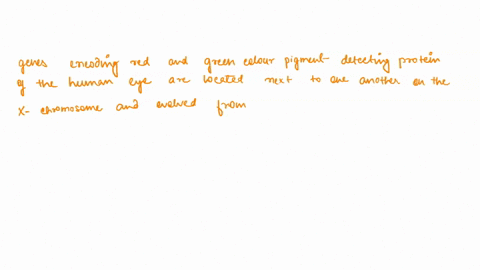 genes encoding red and green colour pigment- detecting protein
of the human eye are located next to one another on the
X- chromosome and evolved from